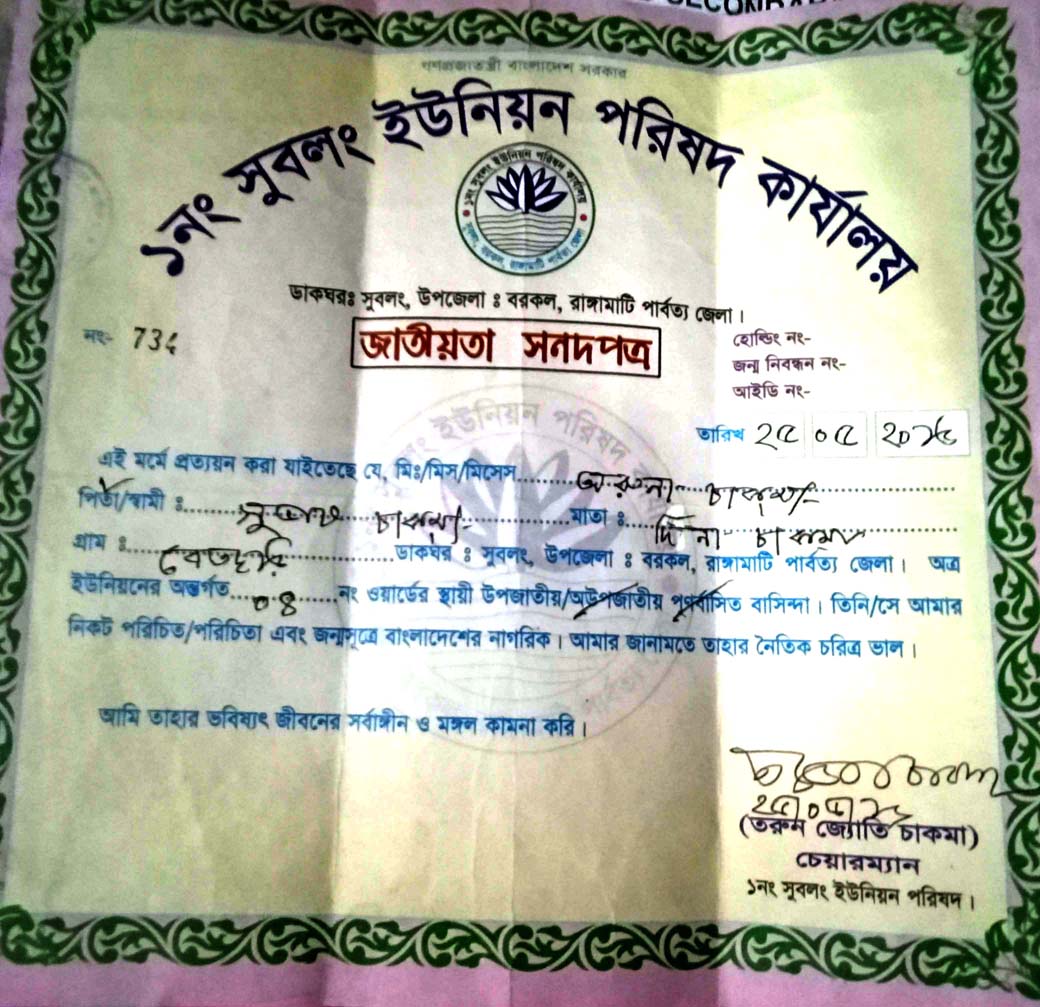 গণপ্রজাতন্ত্রী বাংলাদেশ সরকার
১নং সুবলং ইউনিয়ন পরিষদ কার্যালয়
১নং সুবলং ইউনিয়ন পরিষদ কার্যালয়
সুবলং, বরকল, রাঙ্গামাটি পার্বত্য জেলা
ডাকঘরঃ সুবলং, উপজেলা ঃ বরকল, রাঙ্গামাটি পার্বত্য জেলা।
নং- 734
জাতীয়তা সনদপত্র
হোল্ডিং নং-
জন্ম নিবন্ধন নং-
আইডি নং-
তারিখ ২৫ ০৫ ২০১৫
এই মর্মে প্রত্যয়ন করা যাইতেছে যে, মিঃ/মিস/মিসেস......অরুনা চাকমা
পিতা/স্বামী ঃ...... চাকমা......মাতা ঃ......চাকমা
গ্রাম ঃ............ডাকঘর ঃ সুবলং, উপজেলা ঃ বরকল, রাঙ্গামাটি পার্বত্য জেলা। অত্র
ইউনিয়নের অন্তর্গত......০৪......নং ওয়ার্ডের স্থায়ী উপজাতীয়/অউপজাতীয় পূর্ণবাসিত বাসিন্দা। তিনি/সে আমার
নিকট পরিচিত/পরিচিতা এবং জন্মসূত্রে বাংলাদেশের নাগরিক। আমার জানামতে তাহার নৈতিক চরিত্র ভাল।
আমি তাহার ভবিষ্যৎ জীবনের সর্বাঙ্গীন ও মঙ্গল কামনা করি।
(তরুন জ্যোতি চাকমা)
চেয়ারম্যান
১নং সুবলং ইউনিয়ন পরিষদ।